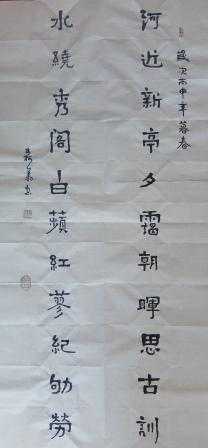 歲次丙申年暮春
河近新亭夕靄朝暉思古訓
水繞秀閣白蘋紅蓼紀劬勞